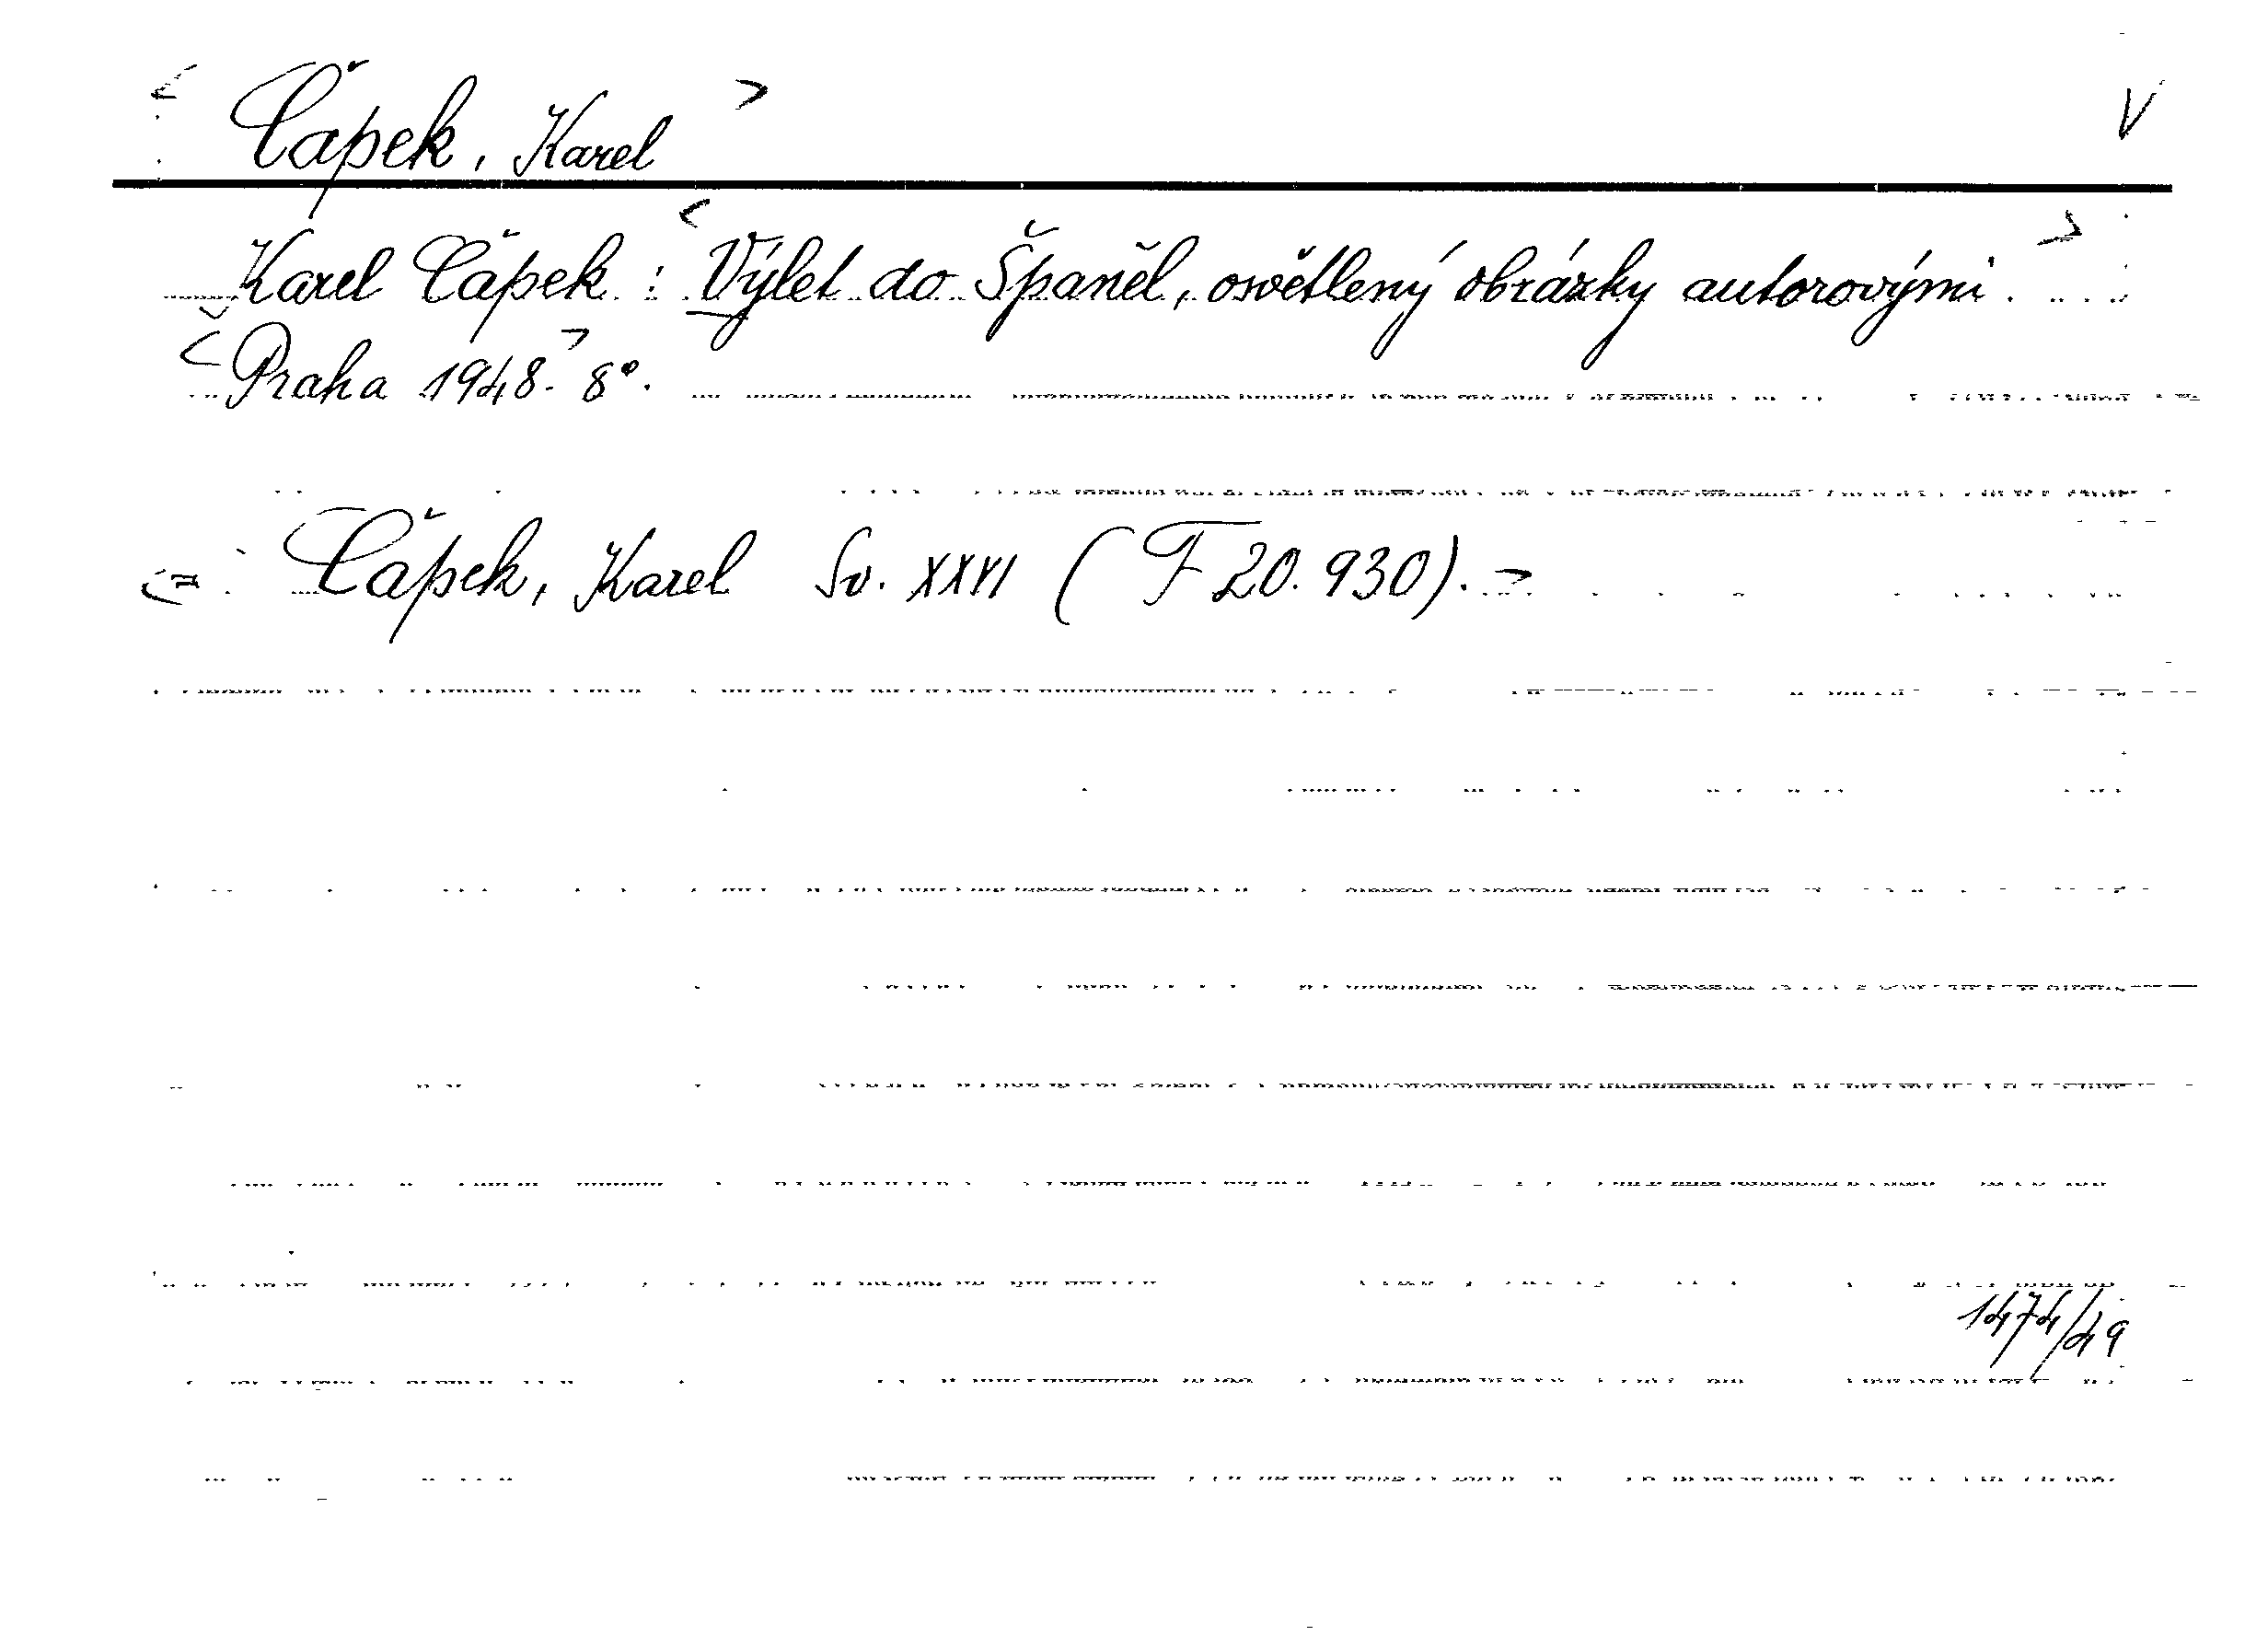 < Čapek, Karel > V
Karel Čapek : < Výlet do Španěl, osvětlený obrázky autorovými. >
< Praha 1948. > 8°.
<= Čapek, Karel Sv. XXVI ( F 20.930). >
1474/49